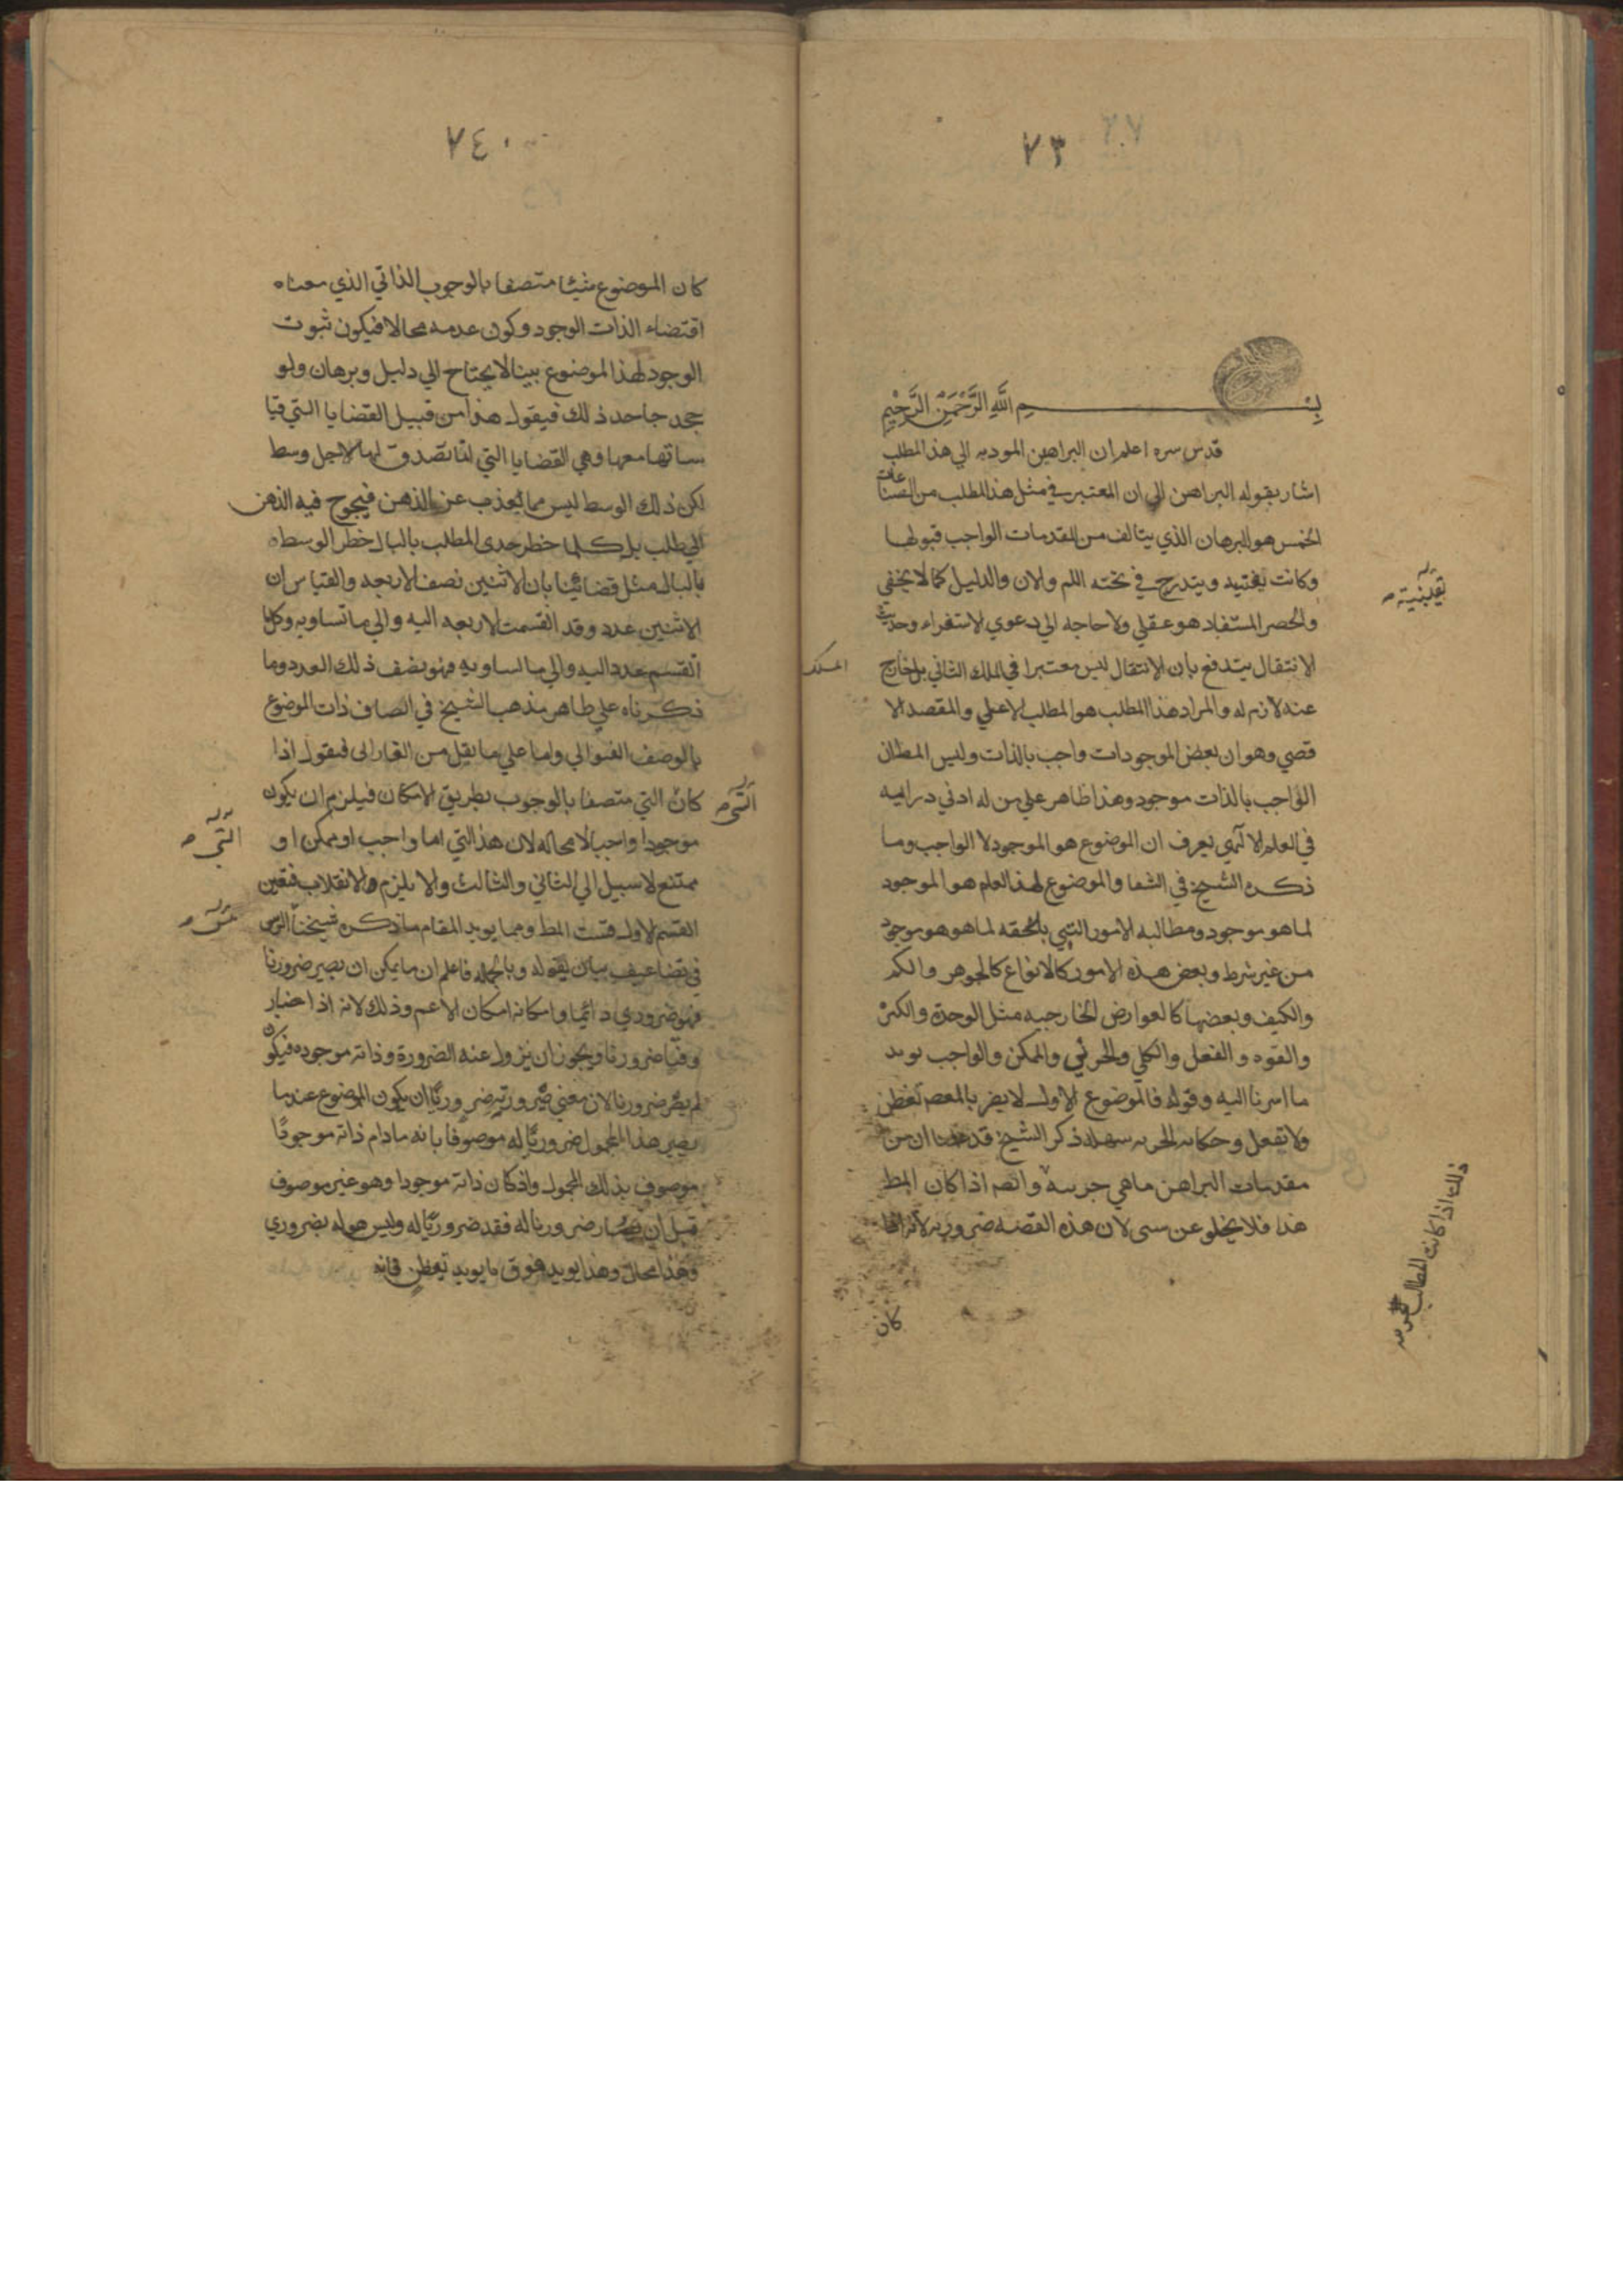 ٧٣
بسم الله الرَّحْمَنِ الرَّحِيْمِ
قدس سره اعلم ان البراهين المودبه الي هذ المطلب
اشار بقوله البراهن الي ان المعتبر في مثل هذ المطلب من الصناعات
الخمس هو البرهان الذي يتالف من المقدمات الواجب قبولها
وكانت يقينيه ويندرج في تحته اللم والان والدليل كما لا يخفي
والحصر المستفاد هو عقلي ولا حاجه الي دعوي الاستقراء وحديث
الانتقال يندفع بان الانتقال ليس معتبرا في الملك الثاني بل خارج
المسلك
عنه لازم له والمراد هذا المطلب هو المطلب الاعلي والمقصد الا
قصي وهو ان بعض الموجودات واجب بالذات وليس المطان
الواجب بالذات موجود وهذا ظاهر علي من له ادني درايه
في العلم الالهي يعرف ان الموضوع هو الموجود لا الواجب وما
ذكره الشيخ في الشفا والموضوع لهذ العلم هو الموجود
لما هو موجود ومطالبه الامور التي يلحقه لما هو هو موجود
من غير شرط وبعض هذه الامور كالانواع كالجوهر والكم
والكيف وبعضها كالعوارض الخارجيه مثل الوحدة والكثرة
والقوه والفعل والكلي والجزئي والممكن والواجب يويد
ما اشرنا اليه وقوله فالموضوع الاول لا يضر بالمعصم تفطن
ولا تفعل وحكايه الجزيه سهله ذكر الشيخ قد ان من
مقدمات البراهن ما هي جزييه وانهم اذا كان المط
هذا فلا يخلو عن شي لان هذه القضيه ضروريه لانه اذا
ذلك اذا كانت المطالب
يقينيته
كان
٧٤
كان الموضوع شيئا متصفا بالوجوب الذاتي الذي معناه
اقتضاء الذات الوجود وكون عدمه محالا فيكون ثبوت
الوجود لهذ الموضوع بينا لا يحتاج الي دليل وبرهان ولو
جحد جاحد ذلك فيقول هذا من قبيل القضايا التي قيا
ساتها معها وهي القضايا التي انما تصدق لها لاجل وسط
لكن ذلك الوسط ليس مما يعذب عن الذهن فيحوج فيه الذهن
الي طلب بل كلما خطر حدي المطلب بالبال خطر الوسط
بالبال مثل قضائنا بان الاثنين نصف الاربعه والقياس ان
الاثنين عدد وقد انقسمت الاربعه اليه والي ما تساويه وكلما
انقسم عدد اليه والي ما يساويه فهو نصف ذلك العدد وما
ذكرناه علي ظاهر مذهب الشيخ في اتصاف ذات الموضوع
بالوصف العنواني واما علي ما نقل من الفارابي فيقول اذا
كان الشي متصفا بالوجوب بطريق الامكان فيلزم ان يكون
موجودا واجبا لا محاله لان هذ الشي اما واجب او ممكن او
ممتنع لا سبيل الي الثاني والثالث والا يلزم الانقلاب فتعين
القسم الاول فثبت المط ومما يويد المقام ما ذكره شيخنا الرئيس
في تضاعيف بيان لقوله وبالجمله فاعلم ان ما يمكن ان يصير ضروريا
فهو ضروري دائما وامكانه امكان الاعم وذلك لانه اذا صار
وقتا ضروريا ويجوز ان يزول عنه الضرورة وذاته موجوده فيكون
لم يصر ضروريا لان معني ضرورته ضروريا ان يكون الموضوع عندما
يصير هذا المحمول ضروريا له موصوفا بانه ما دام ذاته موجودًا
موصوف بذلك المحمول واذ كان ذاته موجودا وهو غير موصوف
قبل ان صار ضروريا له فقد ضروريا له وليس هو له بضروري
وهذا محال وهذا يويد فوق ما يويد تفطن فانه
الشي
الشي